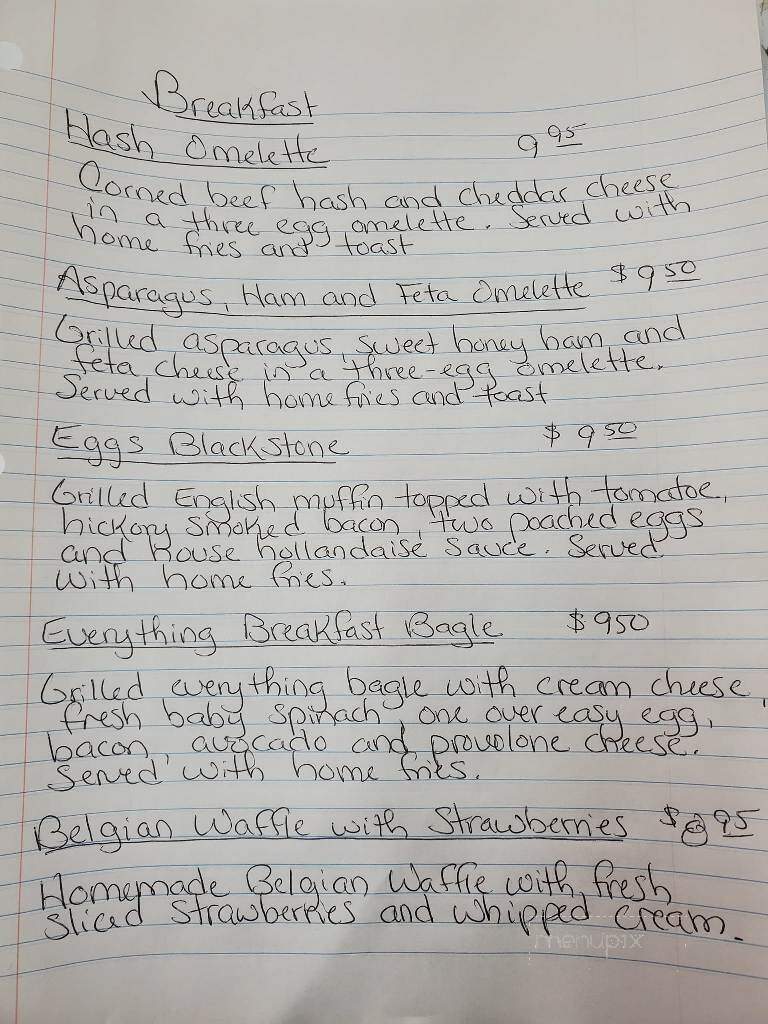 Breakfast
Hash Omelette 9 95
Corned beef hash and cheddar cheese
in a three egg omelette. Served with
home fries and toast
Asparagus, Ham and Feta Omelette $ 9 50
Grilled asparagus, sweet honey ham, and
feta cheese in a three-egg omelette.
Served with home fries and toast
Eggs Blackstone $ 9 50
Grilled English muffin topped with tomatoe,
hickory smoked bacon, two poached eggs
and house hollandaise sauce. Served
with home fries.
Everything Breakfast Bagle $ 950
Grilled everything bagle with cream cheese,
fresh baby spinach, one over easy egg,
bacon, avocado and provolone cheese.
Served with home fries.
Belgian Waffle with Strawberries $ 8 95
Homemade Belgian Waffle with fresh
sliced strawberries and whipped cream.
menupix